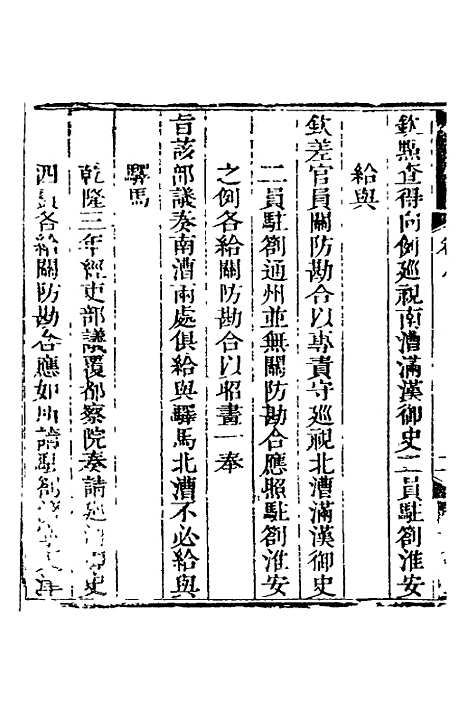 欽點查得向例巡視南漕滿漢御史二員駐劄淮安
給與
欽差官員關防勘合以專責守巡視北漕滿漢御史
二員駐劄通州並無關防勘合應照駐劄淮安
之例各給關防勘合以昭畫一奉
旨該部議奏南漕兩處俱給與驛馬北漕不必給與
驛馬
乾隆三年經吏部議覆都察院奏請巡漕御史
四員各給關防勘合應如所請駐劄